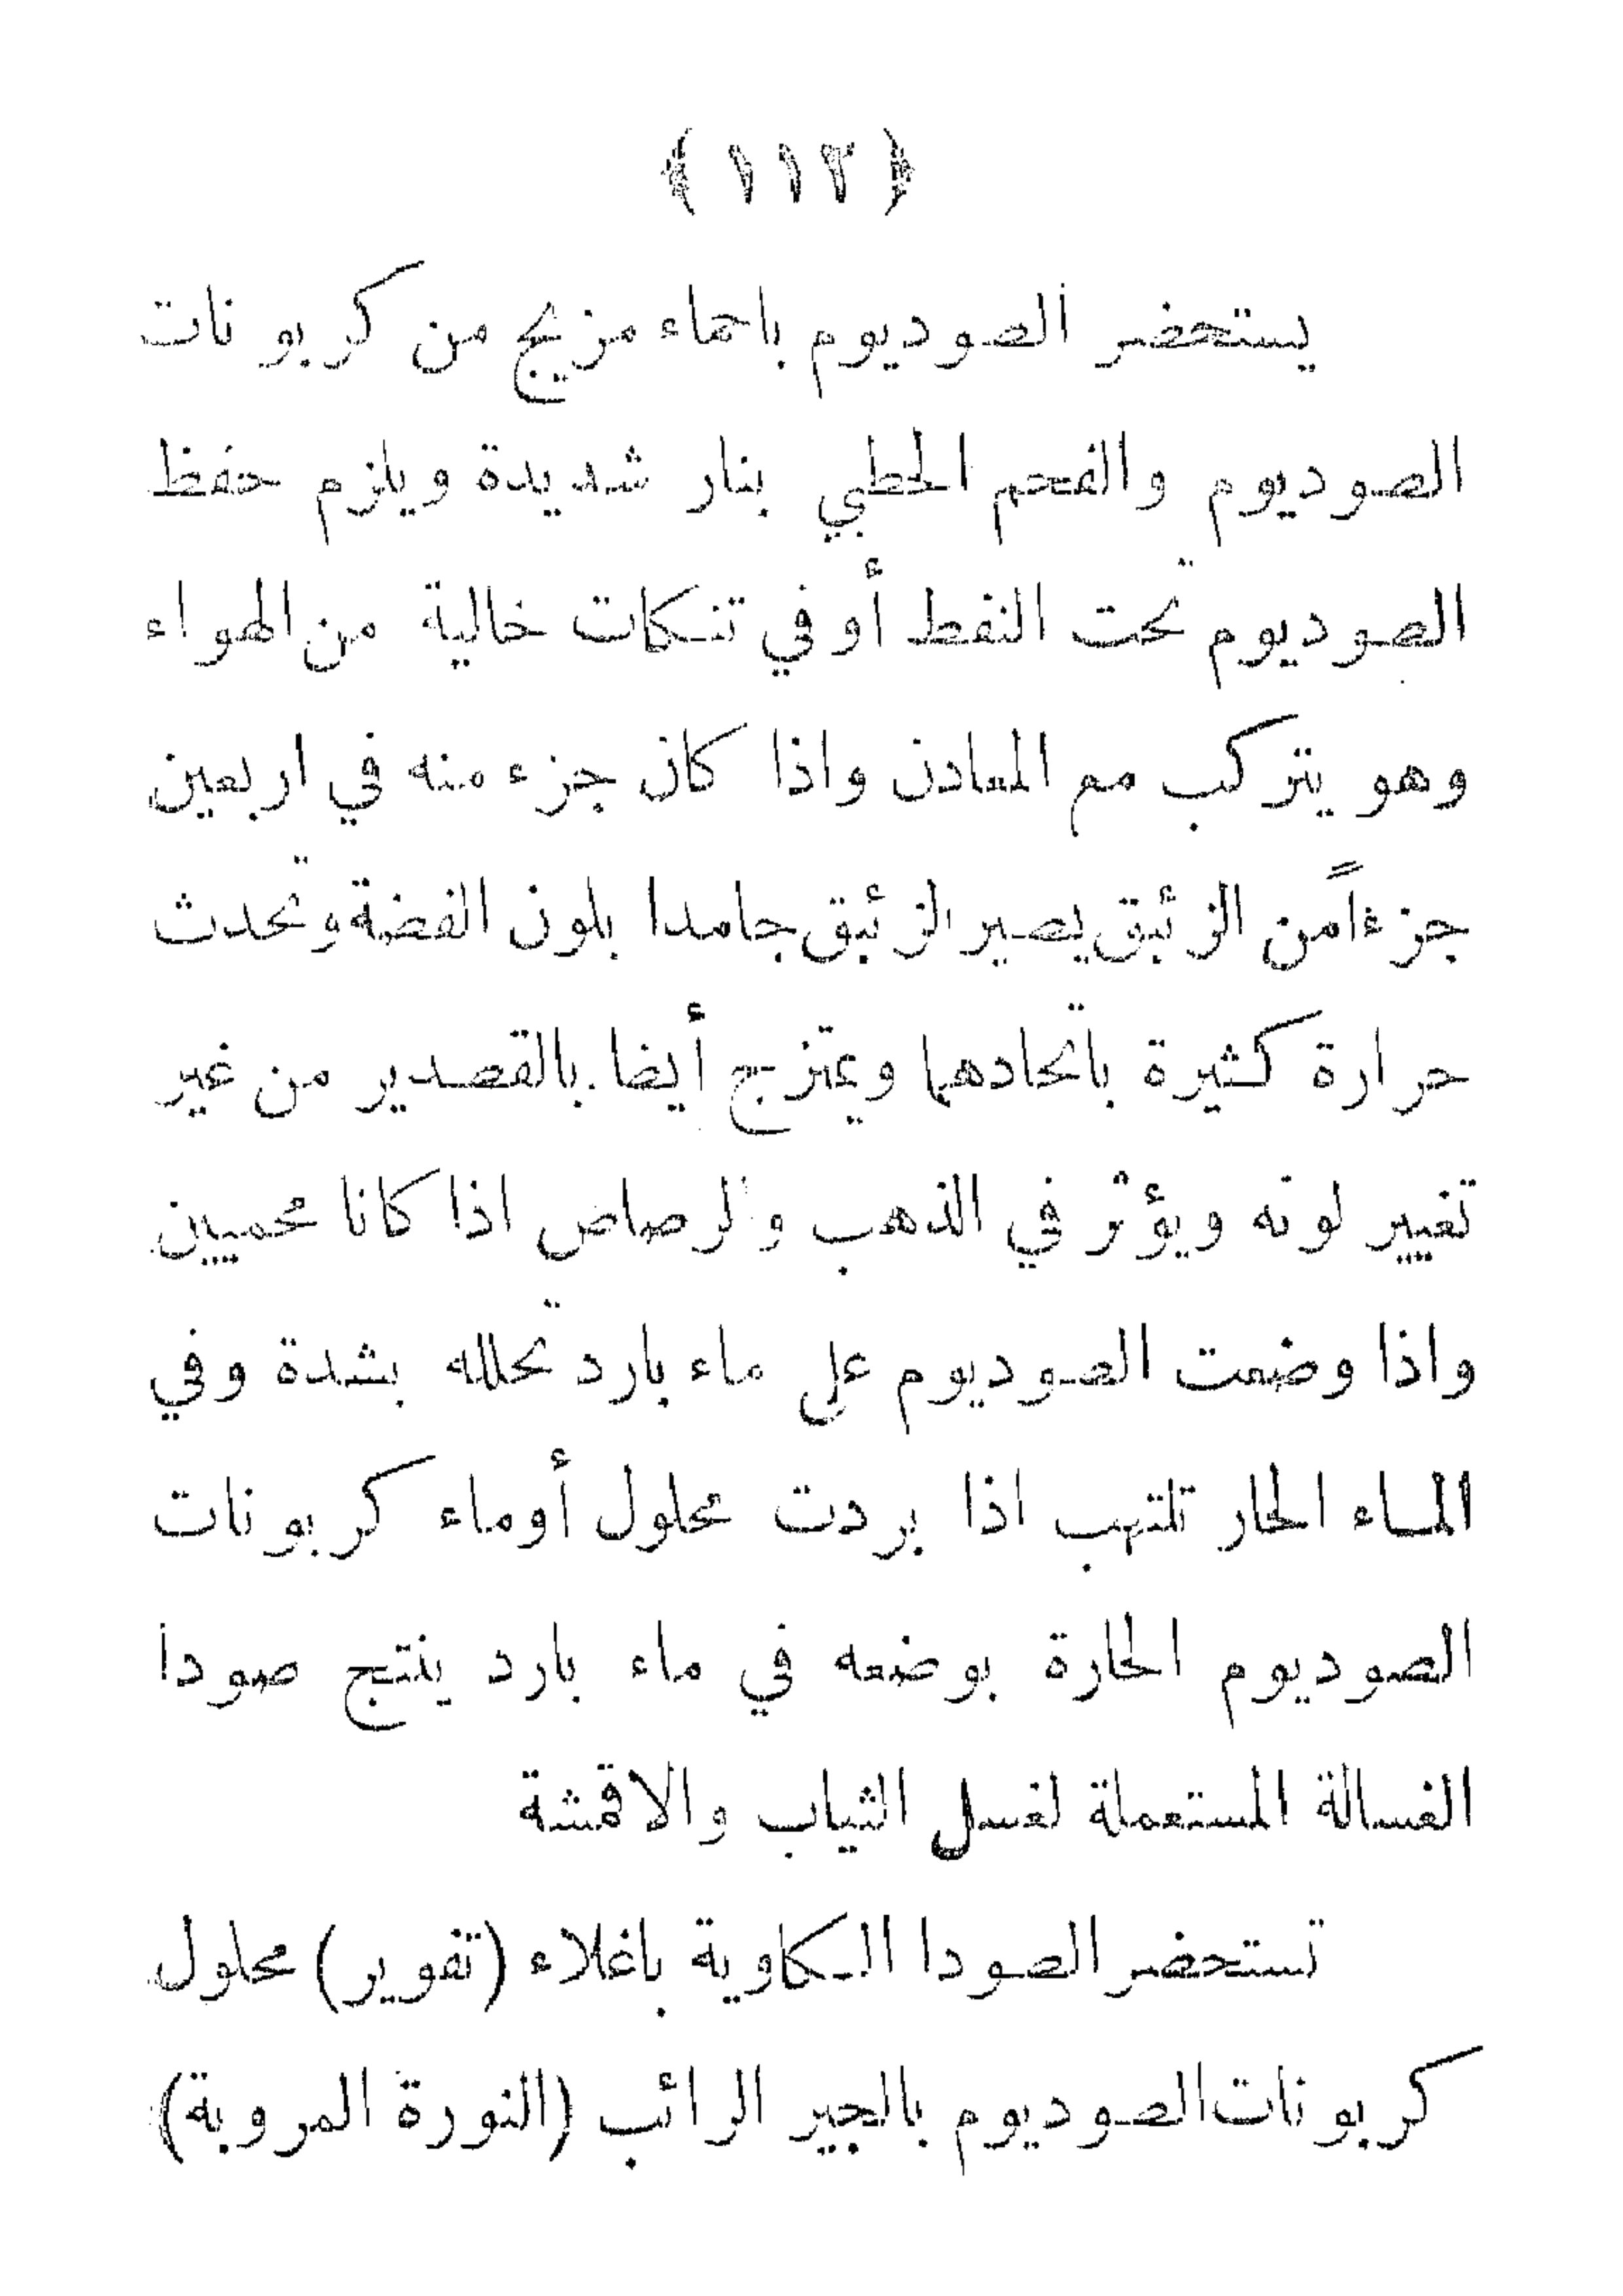 ﴿ ١١٢ ﴾
يستحضر الصوديوم باحماء مزيج من كربونات
الصوديوم والفحم الحطبي بنار شديدة ويلزم حفظ
الصوديوم تحت النفط أو في تنكات خالية من الهواء
وهو يتركب مع المعادن واذا كان جزء منه في اربعين
جزءاً من الزئبق يصير الزئبق جامدا بلون الفضة وتحدث
حرارة كثيرة باتحادهما ويمتزج أيضا بالقصدير من غير
تغيير لونه ويؤثر في الذهب والرصاص اذا كانا محميين
واذا وضعت الصوديوم على ماء بارد تحلله بشدة وفي
الماء الحار تلتهب اذا بردت محلول أوماء كربونات
الصوديوم الحارة بوضعه في ماء بارد ينتج صودا
الغسالة المستعملة لغسل الثياب والاقمشة
تستحضر الصودا الكاوية باغلاء (تفوير) محلول
كربونات الصوديوم بالجير الرائب (النورة المروبة)